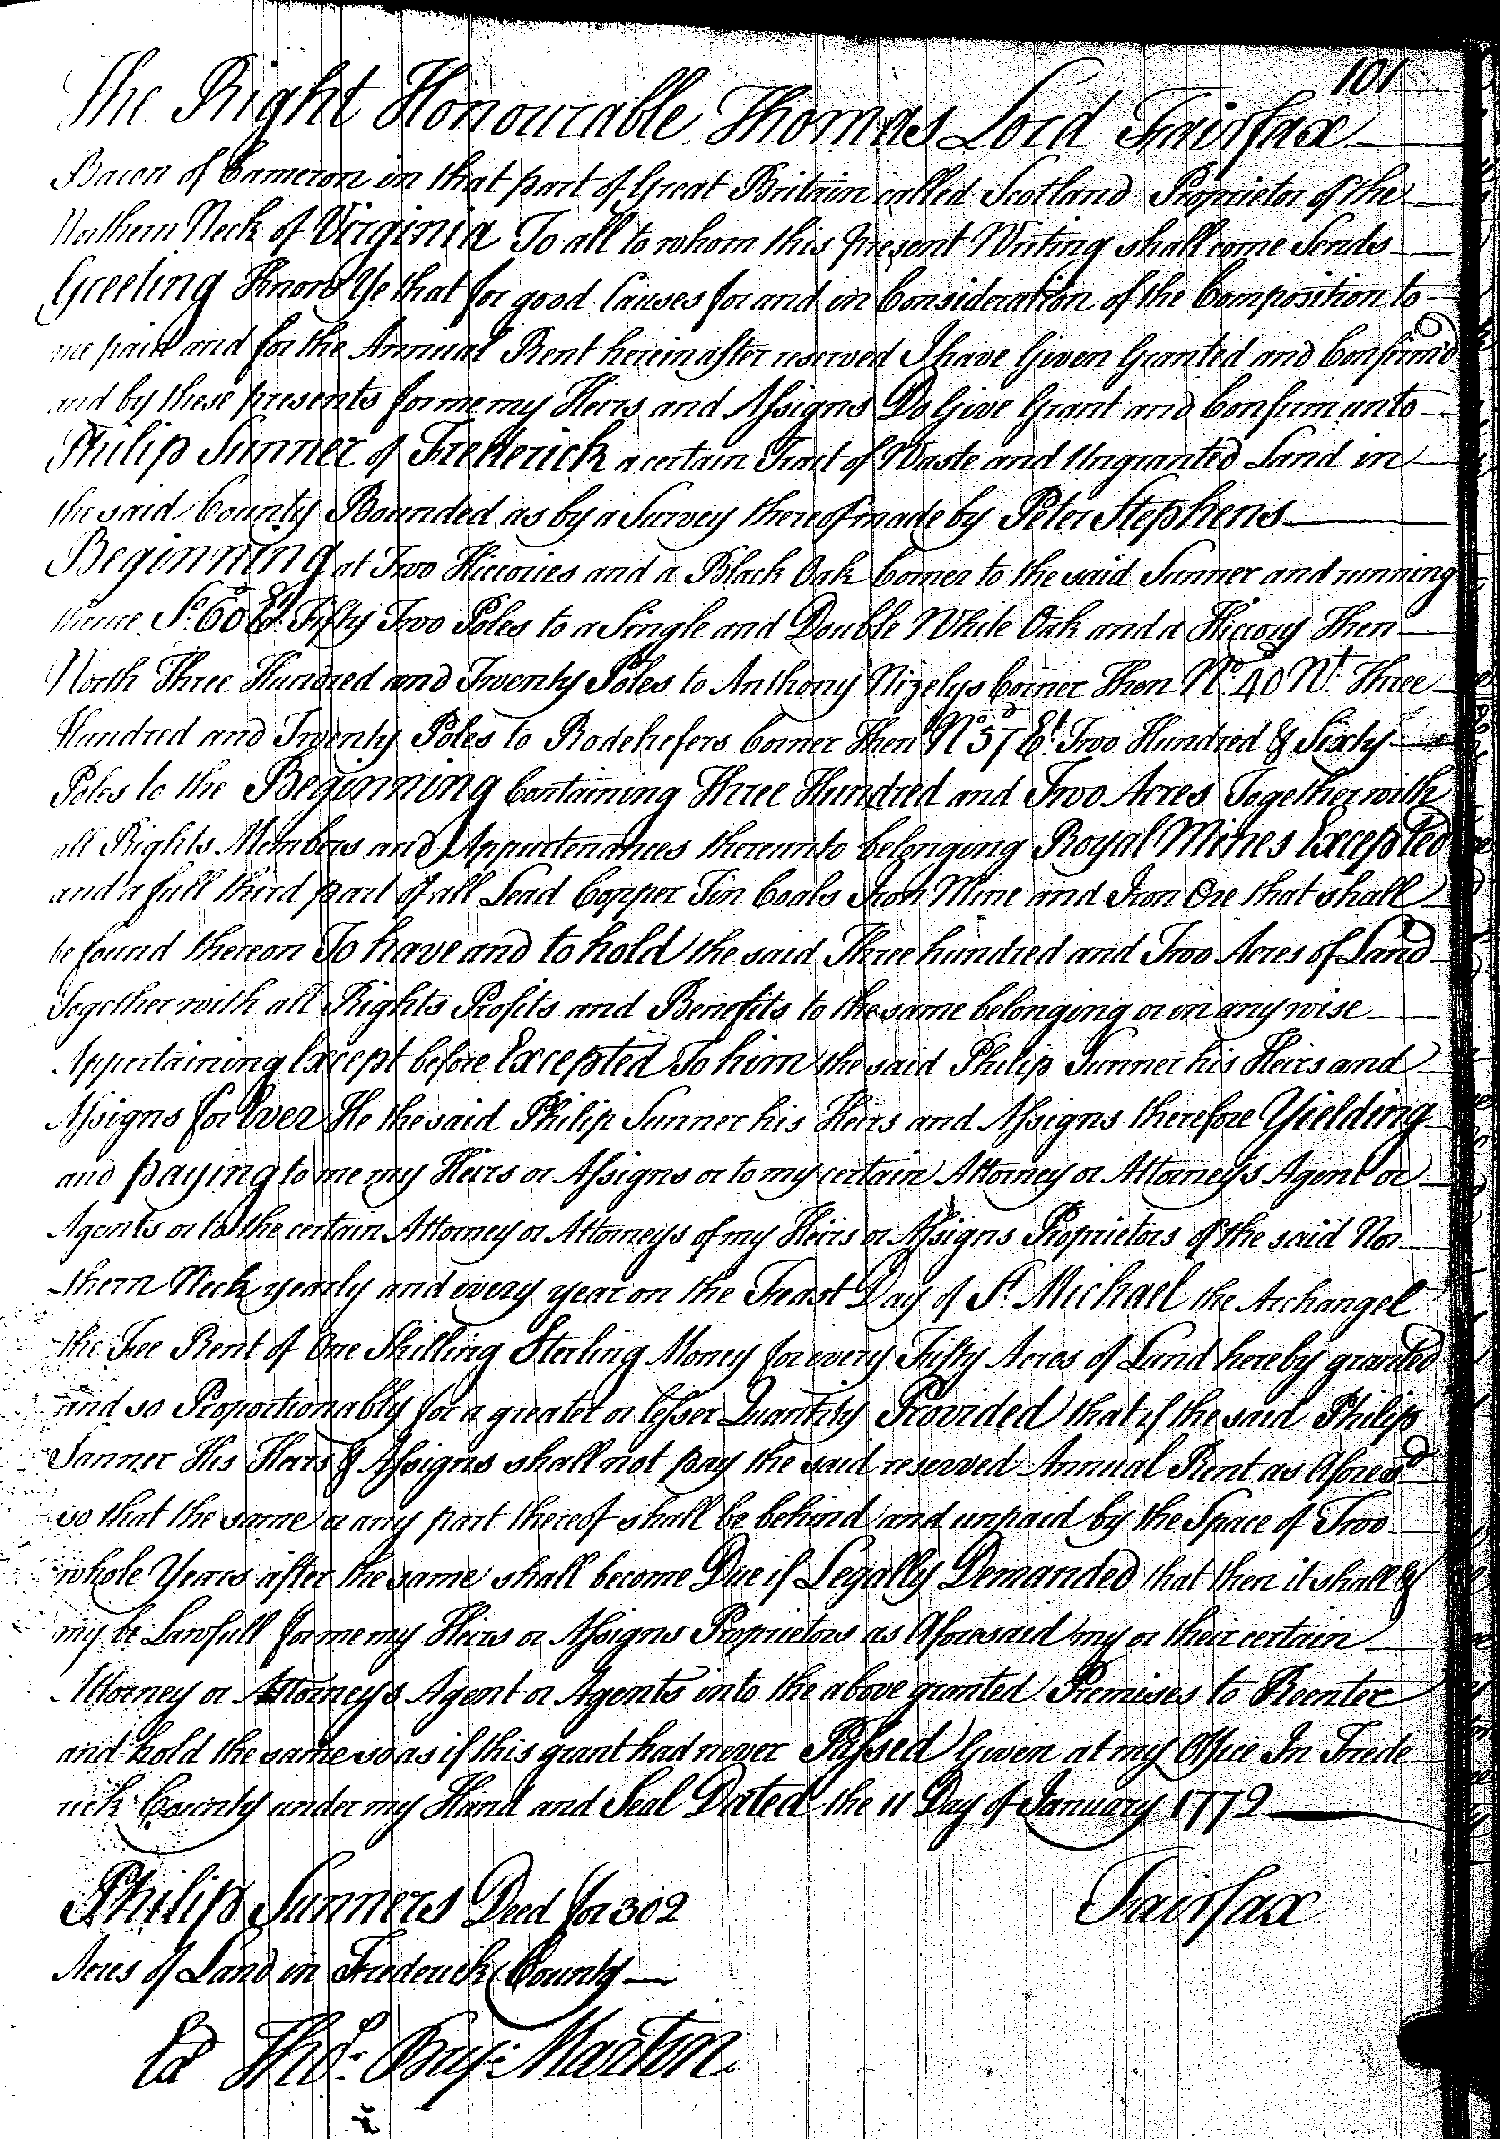 101
The Right Honourable Thomas Lord Fairfax
Baron of Cameron in that part of Great Britain called Scotland Proprietor of the
Northern Neck of Virginia To all to whom this present Writing shall come Sends
Greeting Know Ye that for good Causes for and in Consideration of the Composition to
me paid and for the Annual Rent hereinafter reserved I have Given Granted and Confirmd
and by these presents for me my Heirs and Assigns Do Give Grant and Confirm unto
Philip Sunner of Frederick a certain Tract of Waste and Ungranted Land in
the said County Bounded as by a Survey thereof made by Peter Stephens
Beginning at Two Hiccories and a Black Oak Corner to the said Sunner and running
thence So. 60d Et. Fifty Two Poles to a Single and Double White Oak and a Hiccory Then
North Three Hundred and Twenty Poles to Anthony Nizelys Corner Then No. 40d Wt. Three
Hundred and Twenty Poles to Rodehefers Corner Then No. 57d Et. Two Hundred & Sixty
Poles to the Beginning Containing Three Hundred and Two Acres Together with
all Rights Members and Appurtenances thereunto belonging Royal Mines Excepted
and a full third part of all Lead Copper Tin Coals Iron Mine and Iron Ore that shall
be found thereon To have and to hold the said Three hundred and Two Acres of Land
Together with all Rights Profits and Benefits to the same belonging or in any wise
Appertaining Except before Excepted To him the said Philip Sunner his Heirs and
Assigns for Ever He the said Philip Sunner his Heirs and Assigns therefore Yielding
and paying to me my Heirs or Assigns or to my certain Attorney or Attorneys Agent or
Agents or to the certain Attorney or Attorneys of my Heirs or Assigns Proprietors of the said Nor
thern Neck yearly and every year on the Feast Day of St. Michael the Archangel
the Fee Rent of One Shilling Sterling Money for every Fifty Acres of Land hereby granted
and so Proportionably for a greater or lesser Quantity Provided that if the said Philip
Sunner His Heirs & Assigns shall not pay the said reserved Annual Rent as Aforesd
so that the same or any part thereof shall be behind and unpaid by the Space of Two
whole Years after the same shall become Due if Legally Demanded that then it shall &
my be Lawfull for me my Heirs or Assigns Proprietors as Aforesaid my or their certain
Attorney or Attorneys Agent or Agents into the above granted Premises to Reenter
and hold the same so as if this grant had never Passed Given at my Office In Frede
rick County under my Hand and Seal Dated the 11 Day of January 1772
Philip Sunners Deed for 302
Fairfax
Acres of Land in Frederick County
Ed Thos. Bry: Martin